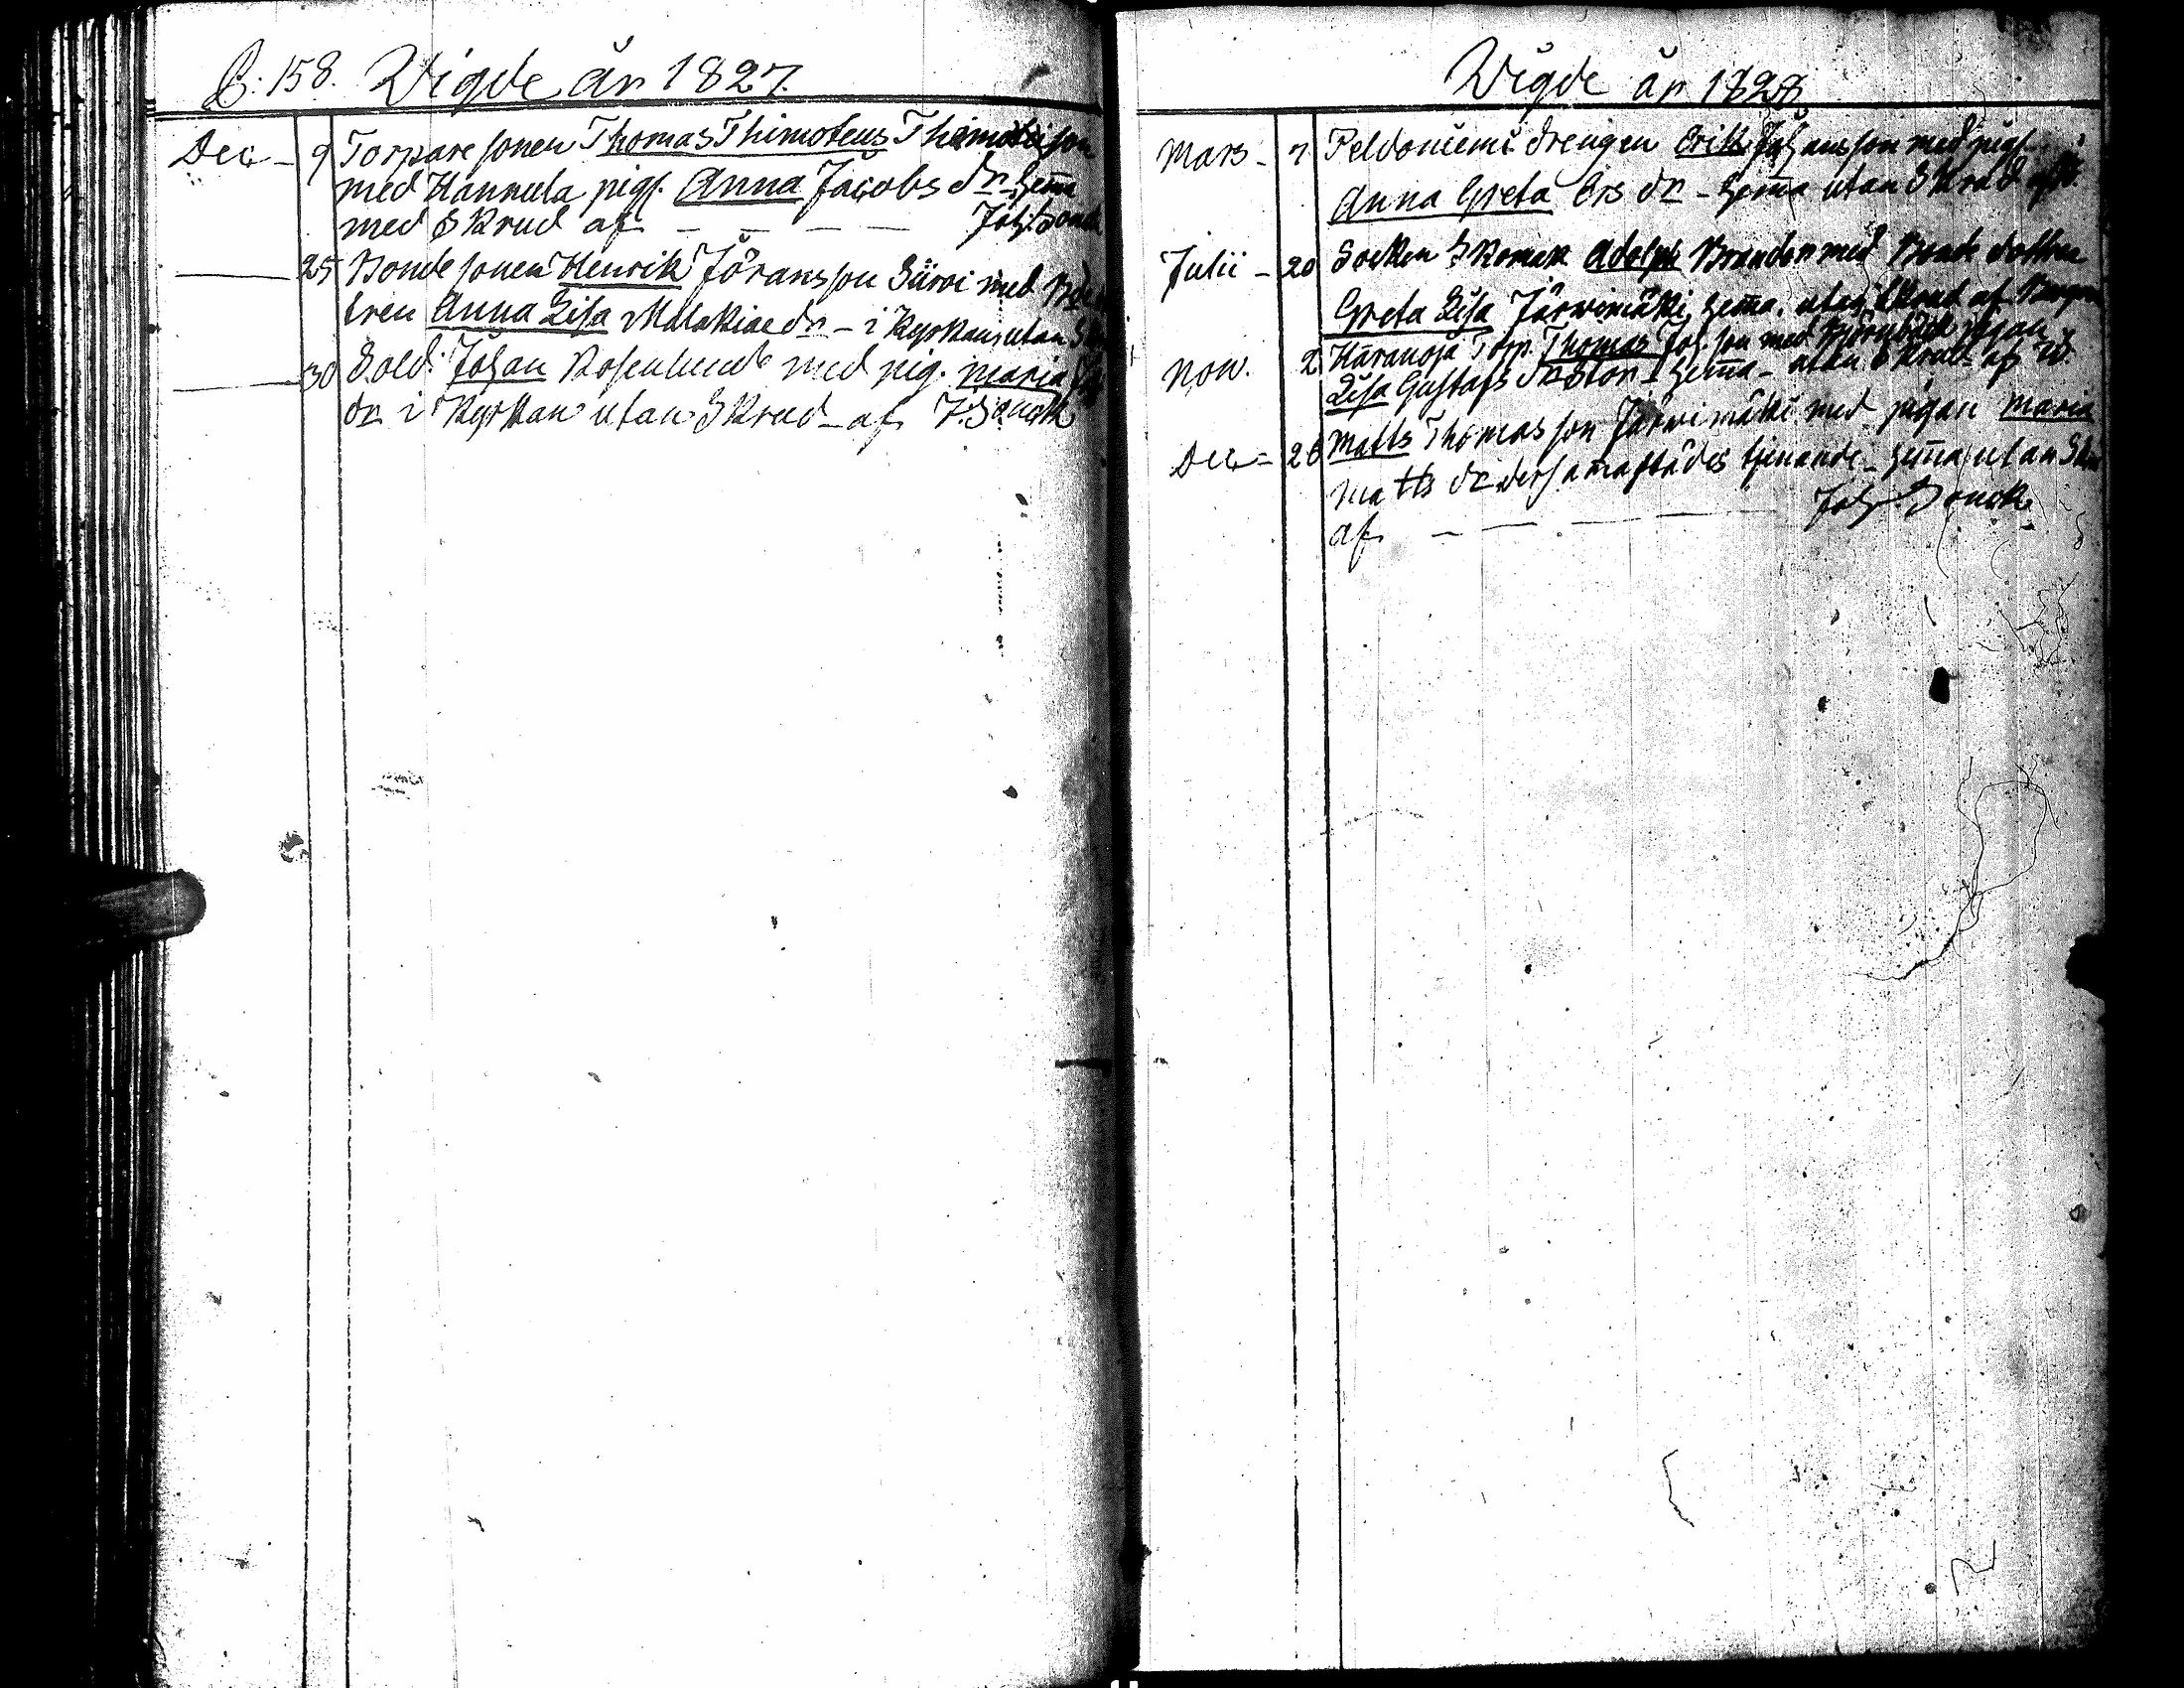 P: 158. Wigde år 1827.
Dec – 9 Torpare sonen Thomas Thimoteus Thimotei son
med Hannula pig. Anna Jacobs dr hema
med Skrud af – – – – Joh: Sonck
25 Bonde sonen Henrik Jöransson Järvi med
tren Anna Lisa Malakiae dr – i Kyrkan utan
30 Sold. Johan Rosenlund med pig. Maria
dr i Kyrkan utan Skrud – af J. Sonck
Wigde år 1828
Mars – 7 Peldoniemi drengen Erik Johansson med pig.
Anna Greta Ers dr – hema utan Skrud
Julii – 20 Socken Skomak Adolph Brander med Bonde dottren
Greta Lisa Järwimäki, hema. utan Skrud af
Nov. 2 Haranoja Torp. Thomas Joh. son med pigan
Lisa Gustafs dr Stor – hema – utan Skrud af
Dec = 26 Matts Thomas son Järwimäki med pigan Maria
Matts dr dersamastädes tjenande – hema utan
af – – – – Joh. Sonck